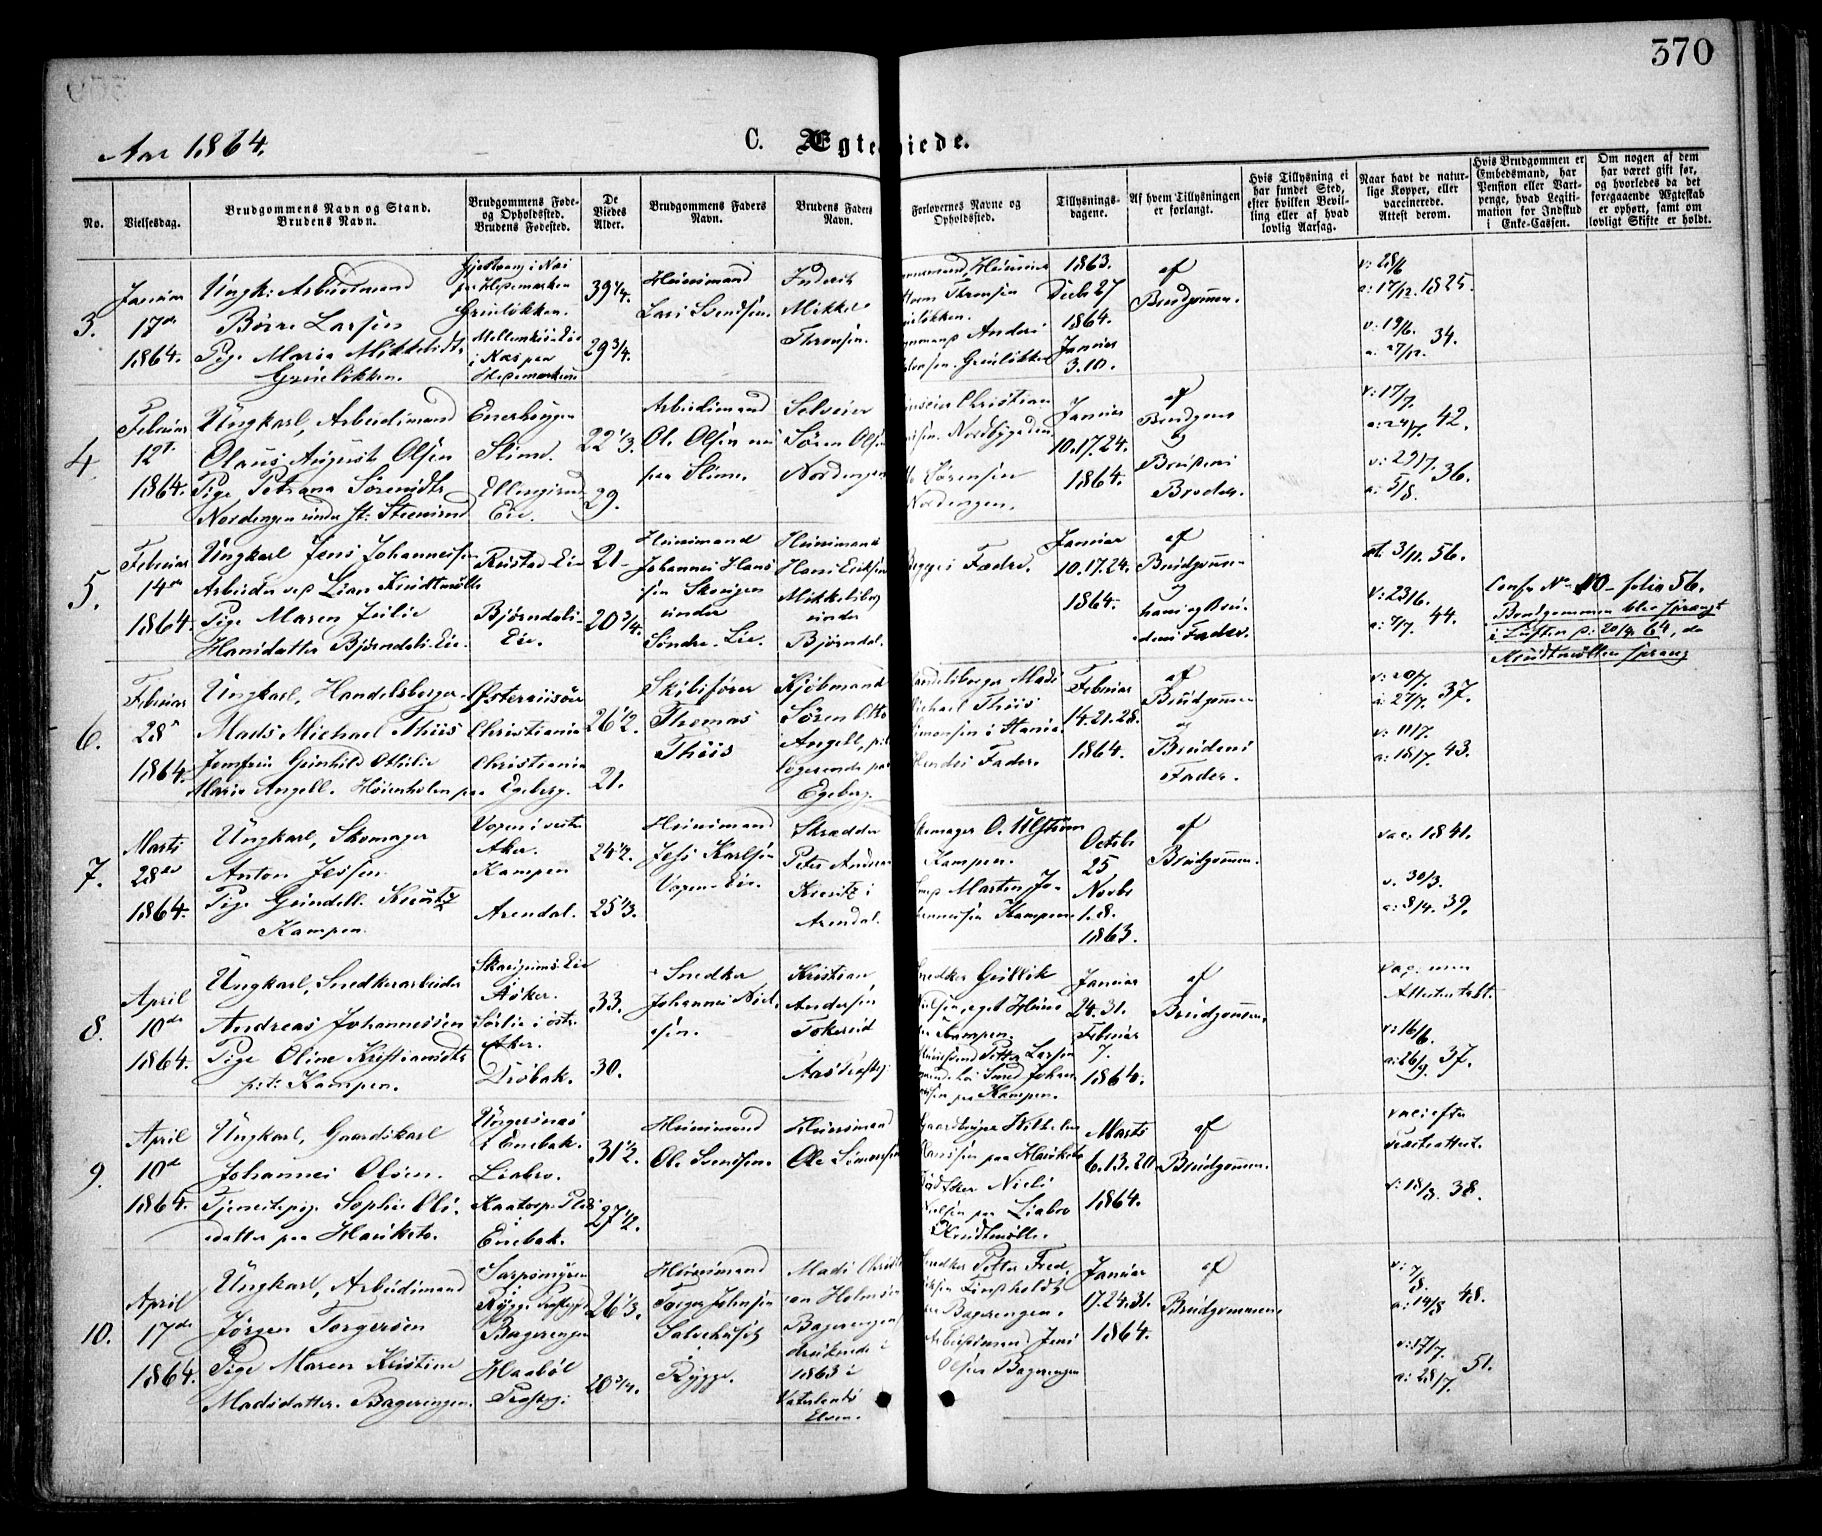 370
Aar 1864.
C. Ægteviede.
No.
Vielsesdag.
Brudgommens Navn og Stand.
Brudens Navn.
Brudgommens Føde-
og Opholdssted.
Brudens Fødested.
De
Viedes
Alder.
Brudgommens Faders
Navn.
Brudens Faders
Navn.
Forlovernes Navne og
Opholdssted.
Tillysnings-
dagene.
Af hvem Tillysningen
er forlangt.
Hvis Tillysning ei
har fundet Sted,
efter hvilken Bevil-
ling eller af hvad
lovlig Aarsag.
Naar havt de natur-
lige Kopper, eller
vaccinerede.
Attest derom.
Hvis Brudgommen er
Embedsmand, har
Pension eller Vart-
penge, hvad Legiti-
mation for Indskud
i Enke-Cassen.
Om nogen af dem
har været gift før,
og hvorledes da det
foregaaende Ægteskab
er ophørt, samt om
lovligt Skifte er holdt.
3.
Januar
17de
1864.
Ungk: Arbeidsmand
Børre Larsen
Pige Maria Mikkelsdtr
Grünløkken.
paa Hedemarken
Grünløkken.
i Næs paa
Hedemarken
39 1/4.
29 3/4.
Huusmand
Lars Svendsen.
Inderst
Mikkel
Thronsen.
Thronsen
Grünløkken
1863.
Decbr 27
1864.
Januar
3. 10.
af
Brudgommen.
v: 28/6
a: 17/12. 1825.
v: 19/6.
a: 27/12. 34.
4.
Februar
12te
1864.
Ungkarl, Arbeidsmand
Olaus August Olsen
Pige Petrana Sørensdtr
Nordengen under st: Steensrud
Enerhougen
Slime.
Ellingsrud
Eie.
22 1/3.
29.
Arbeidsmand
Ole Olsen
paa Slime.
Selveier
Søren Olsen
Nordengen
Christian
Nordbygaden
Sørensen
Nordengen.
Januar
10. 17. 24.
1864.
af
Brudgom
og
Brudens
Broder.
v: 17/7.
a: 24/7. 42.
v: 29/7. 36.
a: 5/8.
5.
Februar
14de
1864.
Ungkarl Jens Johannessen
Arbeider ved Lian Krudtmølle
Pige Maren Julie
Hansdatter Bjørndals-Eie.
Rustad-Eie
Bjørndals-
Eie.
21
20 3/4.
Huusmand
Johannes Hans
sen Skougen
under
Søndre-Lie.
Huusmand
Hans Eriksen
Mikkelsberg
under
Bjørndal.
Begges Fædre.
Januar
10. 17. 24.
1864.
af
Brudgom-
og
hans og Bru-
dens Fader.
at. 3/11. 56.
v: 23/6.
a: 7/7. 44.
Confr No 10 - folio 56.
Brudgommen blev sprængt
i Luften p: 20/4 64, da
Krudtmøllen sprang
6.
Februar
28de
1864.
Ungkarl, Handelsborger
Mads Michael Thiis
Jomfru Gunhild Othilie
Marie Angell. Høienholen paa
Østerriisøer
Christiania
Christiania
Egeberg.
26 1/2.
21.
Skibsfører
Thomas
Thiis
Kjøbmand
Søren Otto
Angell,
Egeberg.
Handelsborger Mads
Michael Thiis
Fader.
Februar
14. 21. 28.
1864.
af
Brudgommen
og
Brudens
Fader.
v: 20/7.
a: 27/7. 37.
v: 11/7.
a: 18/7. 43.
7.
Marts
28de
1864.
Ungkarl, Skomager
Anton Jessen
Pige Gundell. Kreutz
Kampen
Vogen i vestr.
Aker.
Kampen
Arendal.
24 1/2.
25 1/3.
Huusmand
Jess Karlsen
Vogen-Eie.
Skrædder
Peter Andreas
Kreutz i
Arendal.
Skomager O. Ulstrøm
Kampen.
Martin Jo-
hannesen Kampen.
Octobr
25
Novbr
1. 8.
1863.
af
Brudgommen.
vac: 1841.
v. 30/3.
a: 8/4. 39.
8.
April
10de
1864.
Ungkarl, Snedkerarbeider
Andreas Johannessen
Pige Oline Kristiansdtr
p:t: Kampen.
Asker.
Sørlie i østr.
Aker.
Drøbak.
33.
30.
Snedker
Johannes Niel-
sen.
Kristian
Andersen
Tokerud
Snedker Gullik
Nielsen, eget Huus
Kampen.
Petter Larsen
Kampen.
Januar
24. 31.
Februar
7.
1864.
af
Brudgommen.
vac: uden
v: 16/6.
a: 26/9. 37.
9.
April
10de
1864.
Ungkarl, Gaardskarl
Johannes Olsen.
Tjenestepige Sophie Ols-
datter paa Hauketo.
Enebak.
Liabro.
Enebak.
31 1/2.
27 1/2.
Huusmand
Ole Svendsen.
Huusmand
Ole Simensen
Gaardbruger Wilhelm
Hansen paa Hauketo
Bødtker Niels
Nielsen paa Liabro
Krudtmølle.
Marts
6. 13. 20
1864.
af
Brudgommen.
vac: efter
v: 18/8. 38.
10.
April
17de
1864.
Ungkarl, Arbeidsmand
Jørgen Torgersen
Pige Maren Kristine
Madsdatter. Bagerengen.
Rygge
Bagerengen
Haabøl
Prgj:
26 1/3.
20 3/4.
Huusmand
Torger Johnsen
Rygge.
Mads Christi-
an Holmsen
Bagerengen
druknede i
1863 i
Elven.
Snedker Petter Fred-
riksen
Bagerengen.
Arbeidsmand Jens
Olsen Bagerengen
Januar
17. 24. 31.
1864.
af
Brudgommen.
v: 7/8.
a: 14/8 48.
v: 17/7.
a: 28/7. 51.